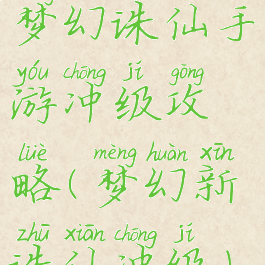 梦幻诛仙手
yóu chōng jí gōng
游冲级攻
lüè mèng huàn xīn
略(梦幻新
zhū xiān chōng jí
诛仙冲级)